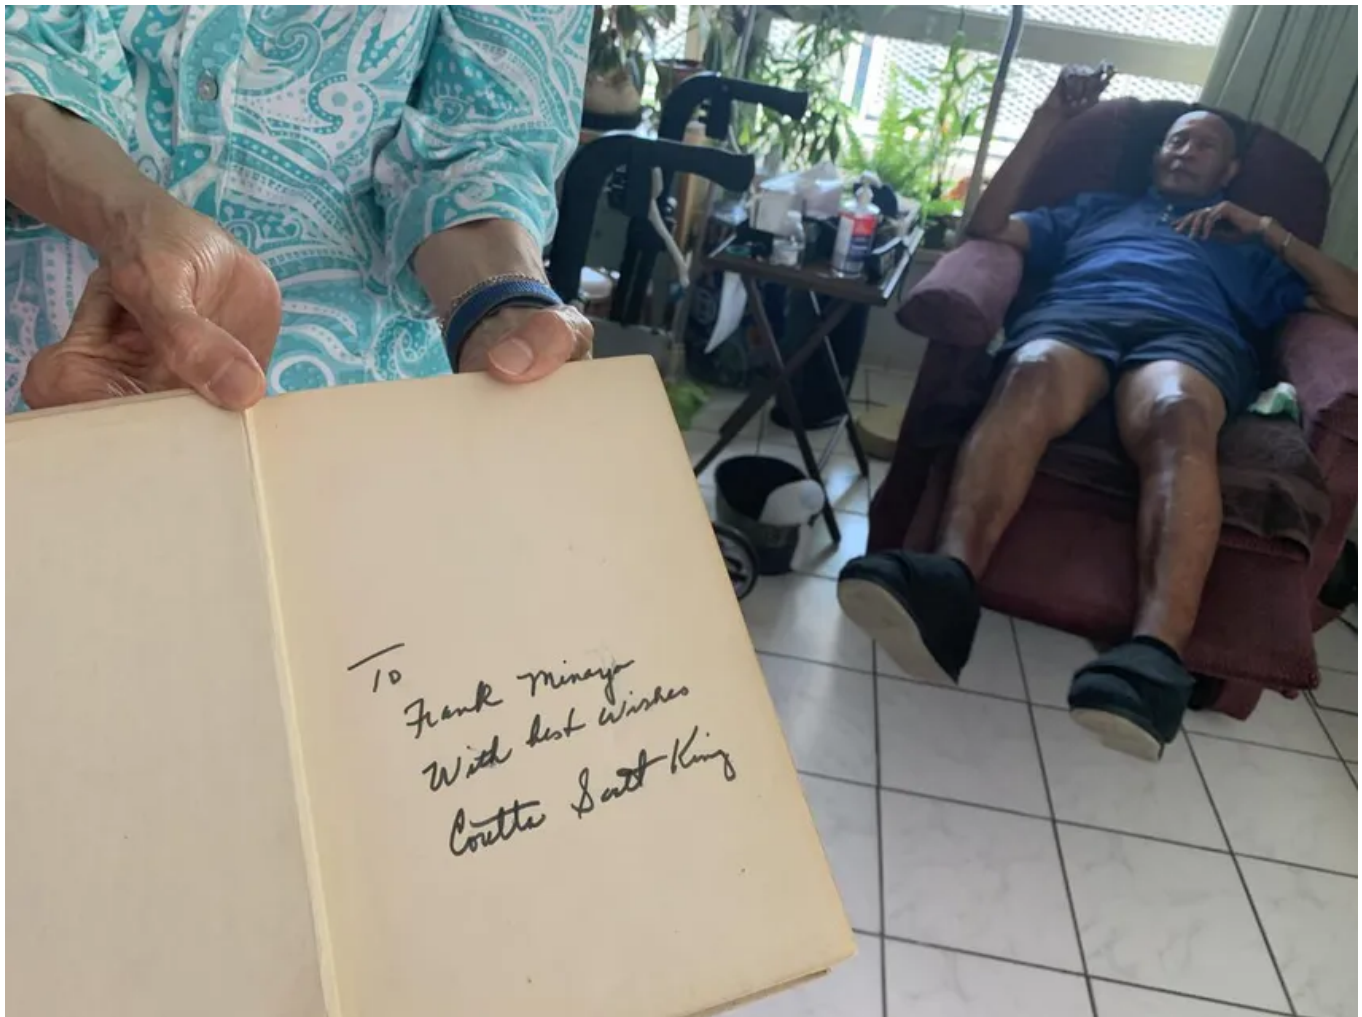 To
Frank Minaya
With best wishes
Coretta Scott King